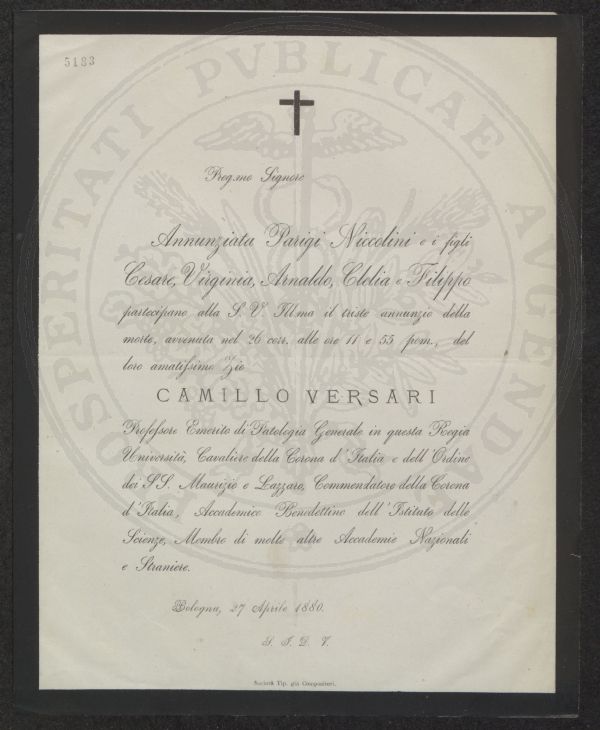 5183
PROSPERITATI PVBLICAE AVGENDAE
Preg.mo Signore
Annunziata Parigi Niccolini e i figli
Cesare, Virginia, Arnaldo, Clelia e Filippo
partecipano alla S. V. Ill.ma il triste annunzio della
morte, avvenuta nel 26 corr. alle ore 11 e 55 pom., del
loro amatissimo Zio
CAMILLO VERSARI
Professore Emerito di Patologia Generale in questa Regia
Università, Cavaliere della Corona d'Italia e dell'Ordine
dei SS. Maurizio e Lazzaro, Commendatore della Corona
d'Italia, Accademico Benedettino dell'Istituto delle
Scienze, Membro di molte altre Accademie Nazionali
e Straniere.
Bologna, 27 Aprile 1880.
Società Tip. già Compositori.